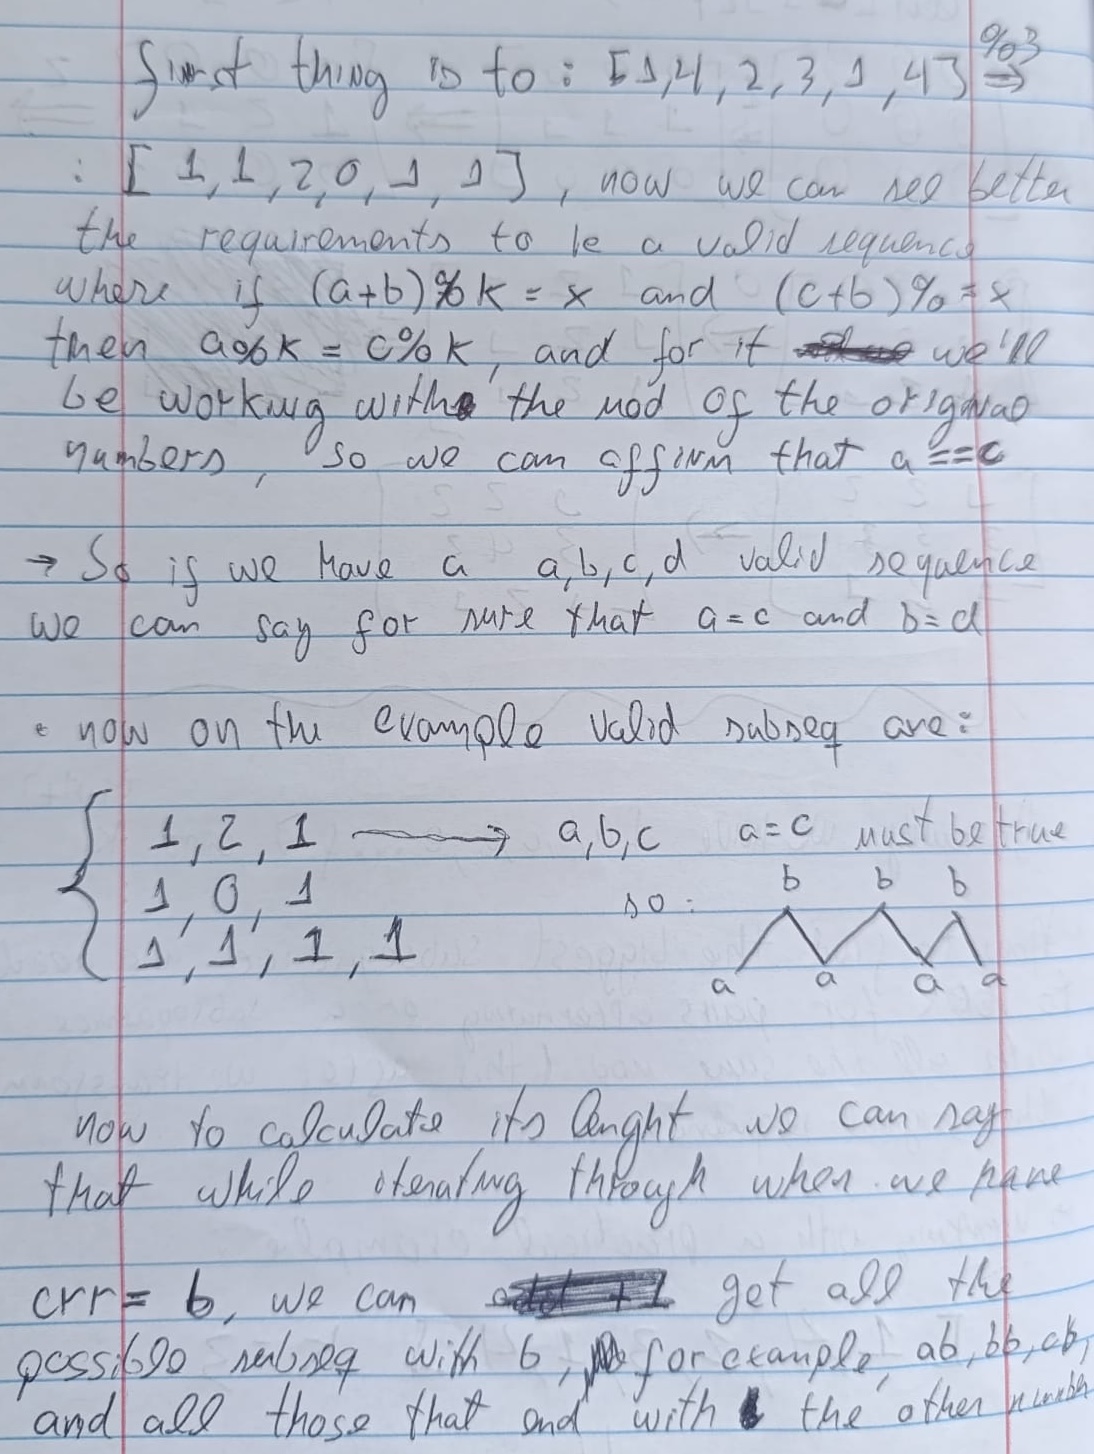 first thing is to : [1,4,2,3,1,4] %3 ⇒
: [ 1,1,2,0,1,1] , now we can see better
the requirements to be a valid sequence
where if (a+b)%k = x and (c+b)%=x
then a%k = c%k, and for it we'll
be working with the mod of the original
numbers, so we can affirm that a==c
→ So if we have a a,b,c,d valid sequence
we can say for sure that a=c and b=d
• now on the example valid subseq are:
1,2,1 → a,b,c a=c must be true
1,0,1 so: b b b
1,1,1,1 a a a a
now to calculate its lenght we can say
that while iterating through when we have
crr= b, we can get all the
possible subseq with b, for example, ab,bb,cb,
and all those that end with the other number